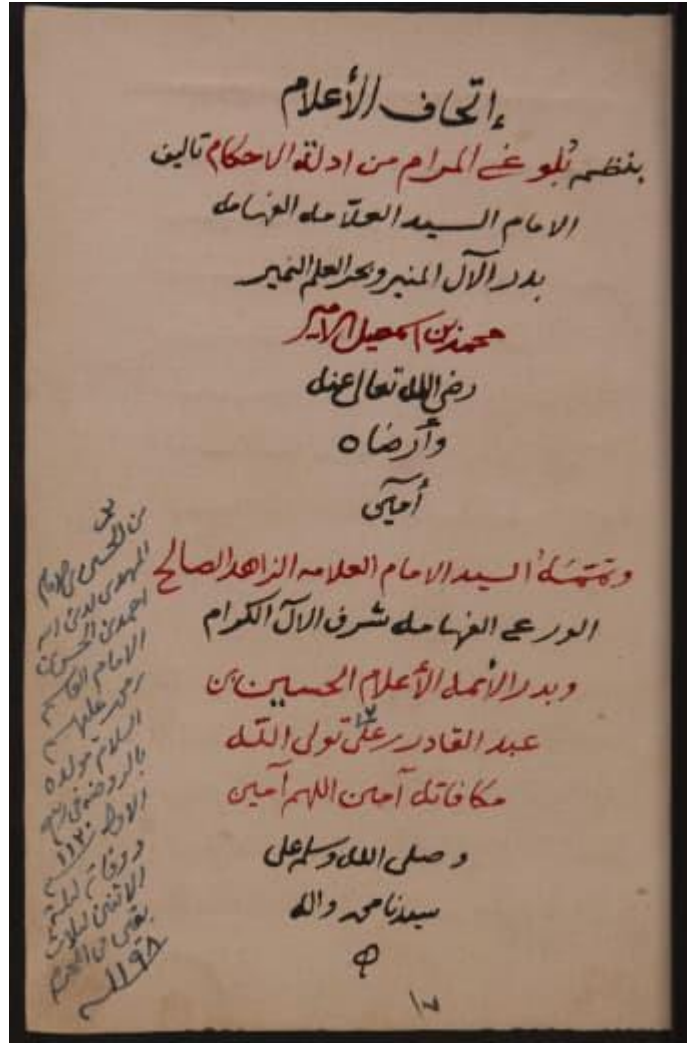 إتحاف الأعلام
بنظم بُلوغ المرام من ادلة الاحكام تاليف
الامام السيد العلّامه الفهامه
بدر الآل المنير وبحر العلم النمير
محمد بن اسمعيل الامير
رضي الله تعالى عنه
وأرضاه
أمين
وتتمته السيد الامام العلامه الزاهد الصالح
الورع الفهامه شرف الال الكرام
وبدر الأئمه الأعلام الحسين بن
عبد القادر بن علي تولى الله
مكافاته آمين اللهم آمين
وصلى الله وسلم على
سيدنا محمد واله
١٧
بن الحسين بن الامام
المهدي لدين الله
احمد بن الحسن بن
الامام القاسم
عليهم
السلام مولده
بالروضه في ربيع
الاول ١١٢٠
ووفاته ليلة
الاثنين لثلاث
بقين من
١١٩٨